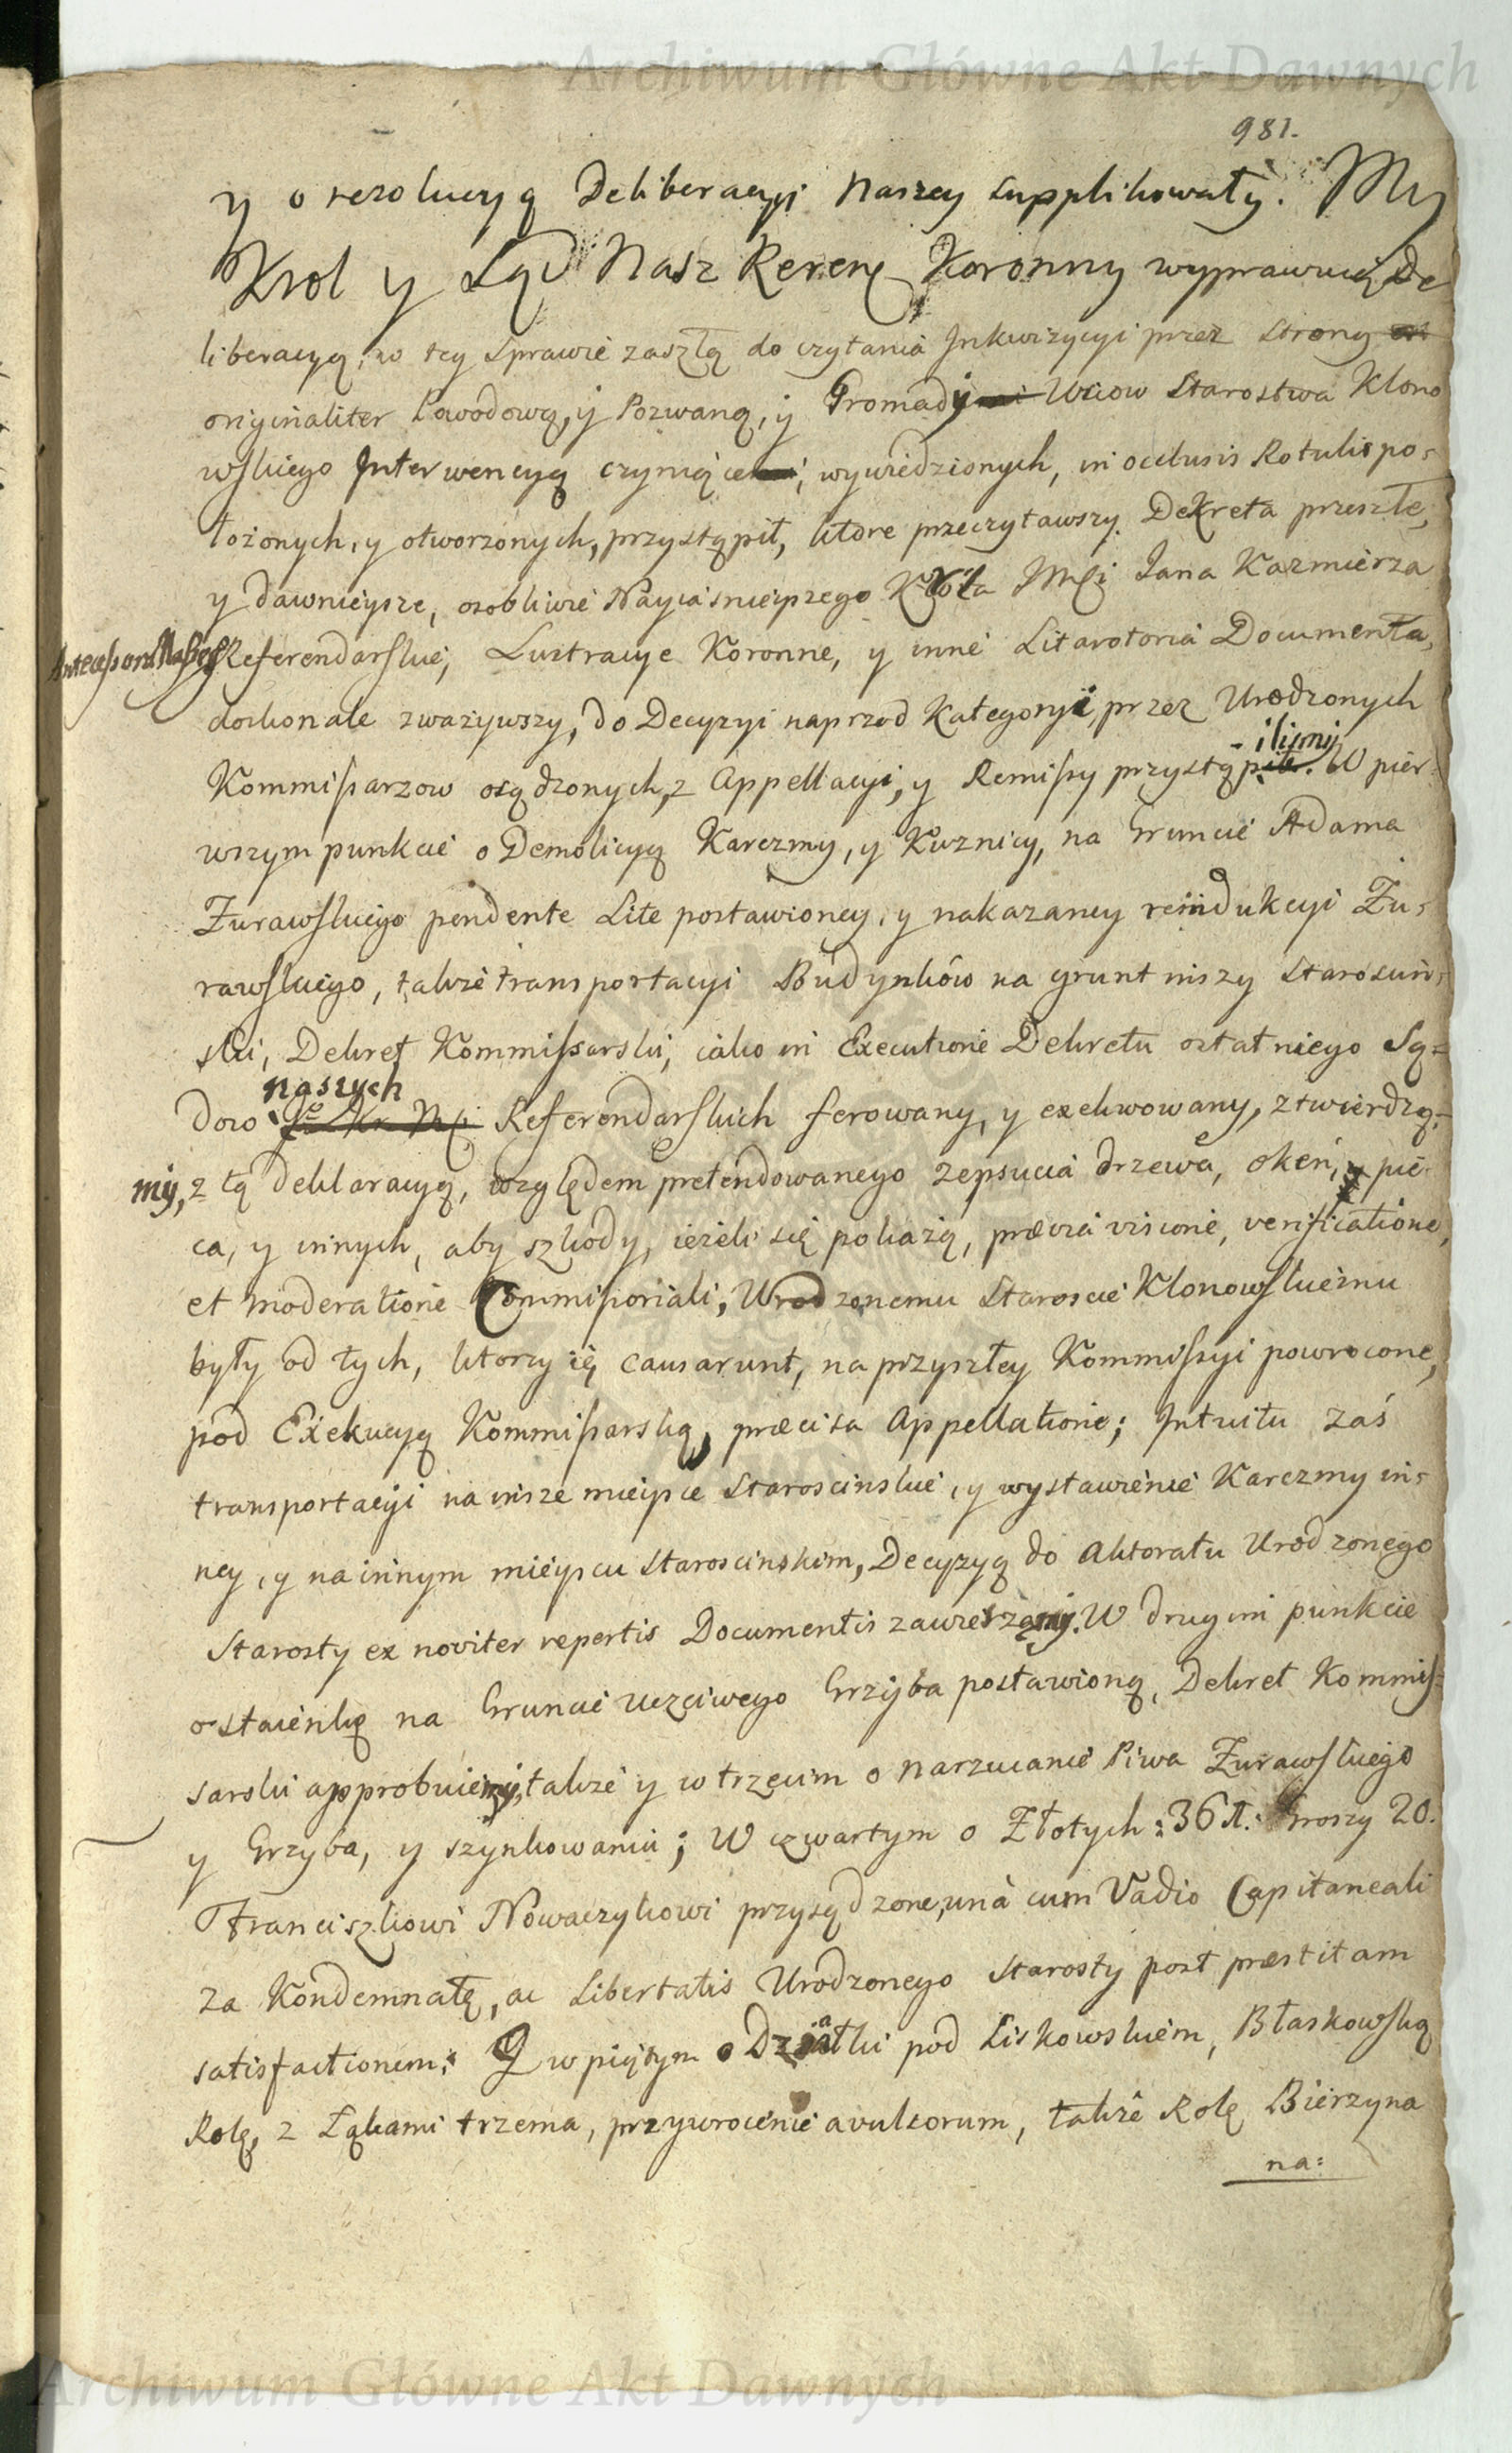 Archiwum Główne Akt Dawnych
981.
y o rezolucyą Deliberacyi Naszey supplikowały. My
Krol y Sąd Nasz Referen Koronny wyprawuiąc De
liberacyą, w tey sprawie zaszłą do czytania Inkwizycyi przez strony
originaliter Powodową, y Pozwaną, y Gromady Wsiow Starostwa Klono
wskiego Interwencyą czyniące, wywiedzionych, in oclusis Rotulis po-
łożonych, y otworzonych, przystąpił, ktore przeczytawszy. Dekreta przeszłe,
y dawnieysze, osobliwie Nayiasnieyszego Krola JMci Jana Kazmierza
Antecessora Naszego Referendarskie, Lustracye Koronne, y inne Litarotoria Documenta,
doskonale zważywszy, do Decyzyi naprzod Kategoryi, przez Urodzonych
Kommissarzow osądzonych, z Appellacyi, y Remissy przystąpiliśmy. W pier-
wszym punkcie o Demolicyą Karczmy, y Kuznicy, na Gruncie Adama
Żurawskiego pendente Lite postawioney, y nakazaney reindukcyi Żu-
rawskiego, także transportacyi Budynków na grunt inszy Staroscin-
ski, Dekret Kommissarski, iako in Executione Dekretu ostatniego Są-
dow naszych Referendarskich ferowany, y exekwowany, ztwierdza-
my, z tą deklaracyą, względem pretendowanego zepsucia drzewa, okien, y pie-
ca, y innych, aby szkody, ieżeli się pokażą, prævia visione, verificatione,
et moderatione Commissoriali, Urodzonemu Staroscie Klonowskiemu
były od tych, ktorzy ię causarunt, na przyszłey Kommissyi powrocone,
pod Exekucyą Kommissarską, præcisa Appellatione; Intuitu zaś
transportacyi na insze mieysce Staroscinskie, y wystawienie Karczmy in-
ney, y na innym mieyscu Staroscinskim, Decyzyą do Aktoratu Urodzonego
Starosty ex noviter repertis Documentis zawieszamy. W drugim punkcie
o staienkę na Gruncie uczciwego Grzyba postawioną, Dekret Kommis-
sarski approbuiemy, także y w trzecim o narzucanie Piwa Żurawskiego
y Grzyba, y szynkowania; W czwartym o Złotych: 36 Gr: Groszy 20.
Franciszkowi Nowaczykowi przysądzone, unà cum Vadio Capitaneali
za Kondemnatę, ac Libertatis Urodzonego Starosty post præstitam
satisfactionem; Y w piątym o Działki pod Liskowskiem, Błaskowską
Rolę, z Łąkami trzema, przywrocenie avulsorum, także Rolę Bierzyna
na:
Archiwum Główne Akt Dawnych